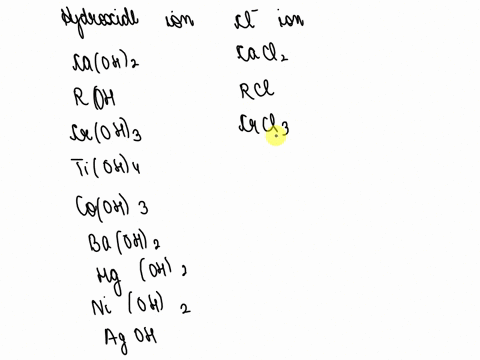 Hydroxide ion Cl⁻ ion
Ca(OH)2 CaCl2
ROH RCl
Cr(OH)3 CrCl3
Ti(OH)4
Co(OH)3
Ba(OH)2
Hg (OH)2
Ni (OH)2
AgOH